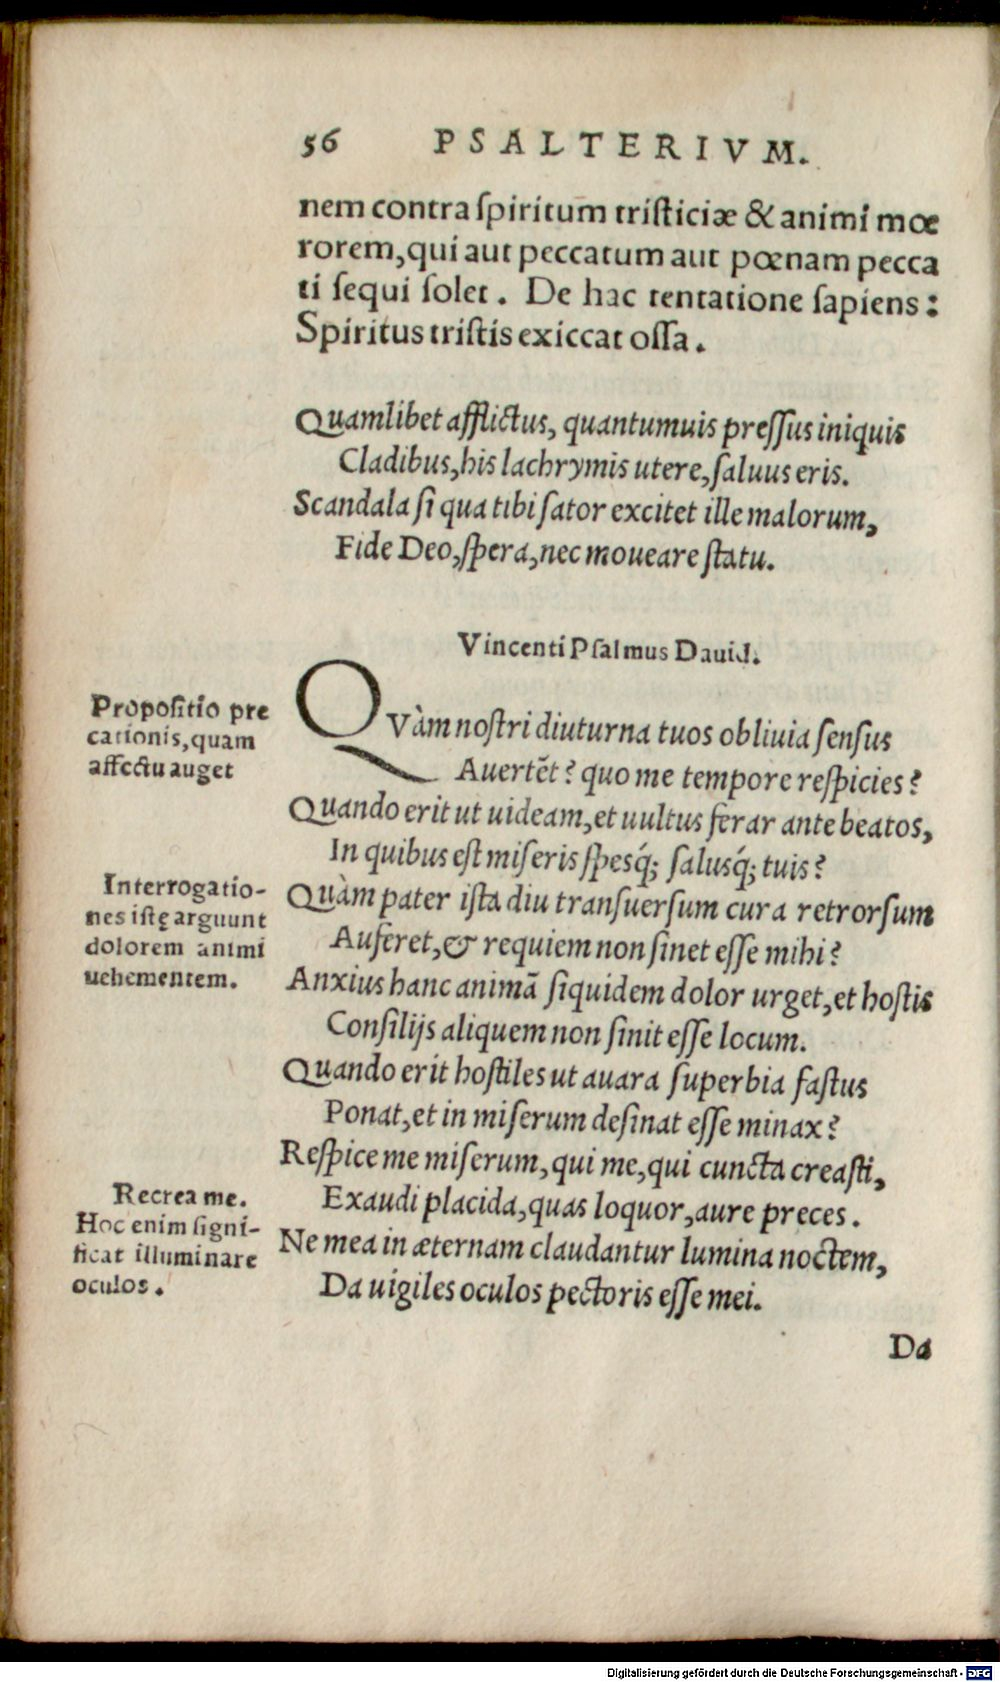 56 PSALTERIVM.
nem contra ſpiritum triſticiæ & animi mœ
rorem, qui aut peccatum aut pœnam pecca
ti ſequi ſolet. De hac tentatione ſapiens:
Spiritus triſtis exiccat oſſa.
Quamlibet afflictus, quantumuis preſſus iniquis
Cladibus, his lachrymis utere, ſaluus eris.
Scandala ſi qua tibi ſator excitet ille malorum,
Fide Deo, ſpera, nec moueare ſtatu.
Vincenti Pſalmus Dauid.
Propoſitio pre
cationis, quam
affectu auget
QVàm noſtri diuturna tuos obliuia ſenſus
Auertẽt? quo me tempore reſpicies?
Quando erit ut uideam, et uultus ferar ante beatos,
In quibus eſt miſeris ſpesq́; ſalusq́; tuis?
Interrogatio-
nes iſtę arguunt
dolorem animi
uehementem.
Quàm pater iſta diu transuerſum cura retrorſum
Auferet, & requiem non ſinet eſſe mihi?
Anxius hanc animã ſiquidem dolor urget, et hoſtis
Conſilijs aliquem non ſinit eſſe locum.
Quando erit hoſtiles ut auara ſuperbia faſtus
Ponat, et in miſerum deſinat eſſe minax?
Reſpice me miſerum, qui me, qui cuncta creaſti,
Exaudi placida, quas loquor, aure preces.
Recrea me.
Hoc enim ſigni-
ficat illuminare
oculos.
Ne mea in æternam claudantur lumina noctem,
Da uigiles oculos pectoris eſſe mei.
Da
Digitalisierung gefördert durch die Deutsche Forschungsgemeinschaft - DFG